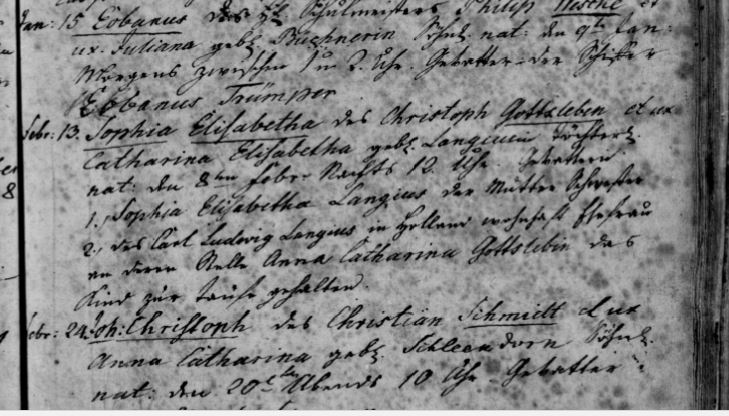 Jan: 15 Eobanus des H. Schulmeisters Philip Nesche et
ux. Juliana gebl. Büchnerin Söhnl. nat: den 9ten Jan:
Morgens zwischen 1 u 2. Uhr. Gevatter der Schiffer
Eobanus Trümper
Febr: 13. Sophia Elisabetha des Christoph Gottsleben et ux
Catharina Elisabetha gebl. Langiusin Töchterl.
nat: den 8ten Febr. Nachts 12. Uhr. Gevattern
1., Sophia Elisabetha Langius der Mutter Schwester
2., des Carl Ludwig Langius in Holland wohnhaft Ehefrau
an deren Stelle Anna Catharina Gottsleben das
Kind zur Taufe gehalten.
Febr: 24. Joh: Christoph des Christian Schmidt et ux
Anna Catharina gebl. Söhnl.
nat: den 20ten Abends 10 Uhr Gevatter :